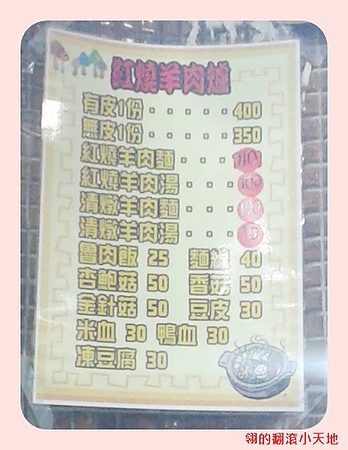 紅燒羊肉爐
有皮1份 ・・・・・400
無皮1份 ・・・・・350
紅燒羊肉麵・・・
紅燒羊肉湯・・・
清燉羊肉麵・・・
清燉羊肉湯・・・
魯肉飯 25 麵線 40
杏鮑菇 50 香菇 50
金針菇 50 豆皮 30
米血 30 鴨血 30
凍豆腐 30
翎的翻滾小天地